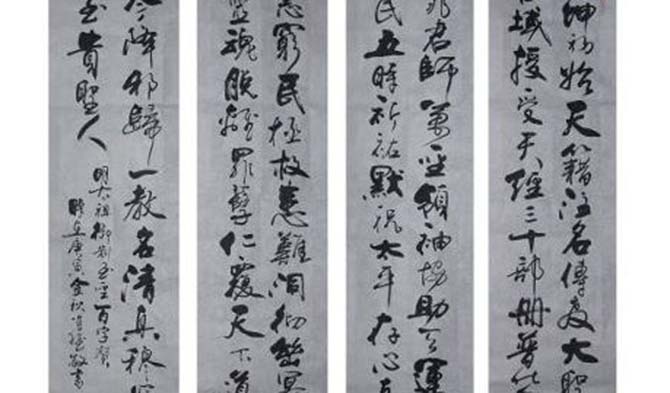 坤初始天籍注名傳教大聖
域授受天經三十部冊普
兆君師萬聖領袖協助天運
民五時祈祐默祝太平存心
志窮民拯救患難洞徹幽冥
靈魂脫離罪孽仁覆天下道
今降邪歸一教名清真穆罕
至貴聖人
明太祖御制至聖百字贊
時在庚寅金秋敬書